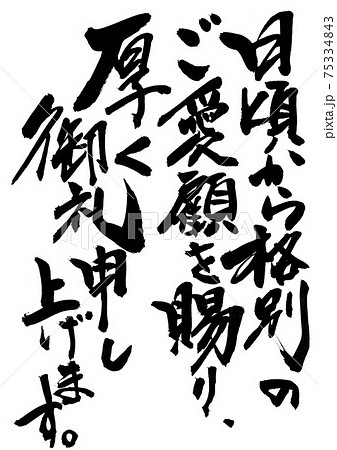 日頃から格別の
ご愛顧を賜り、
厚く
御礼申し
上げます。
PIXTA
pixta.jp - 75334843